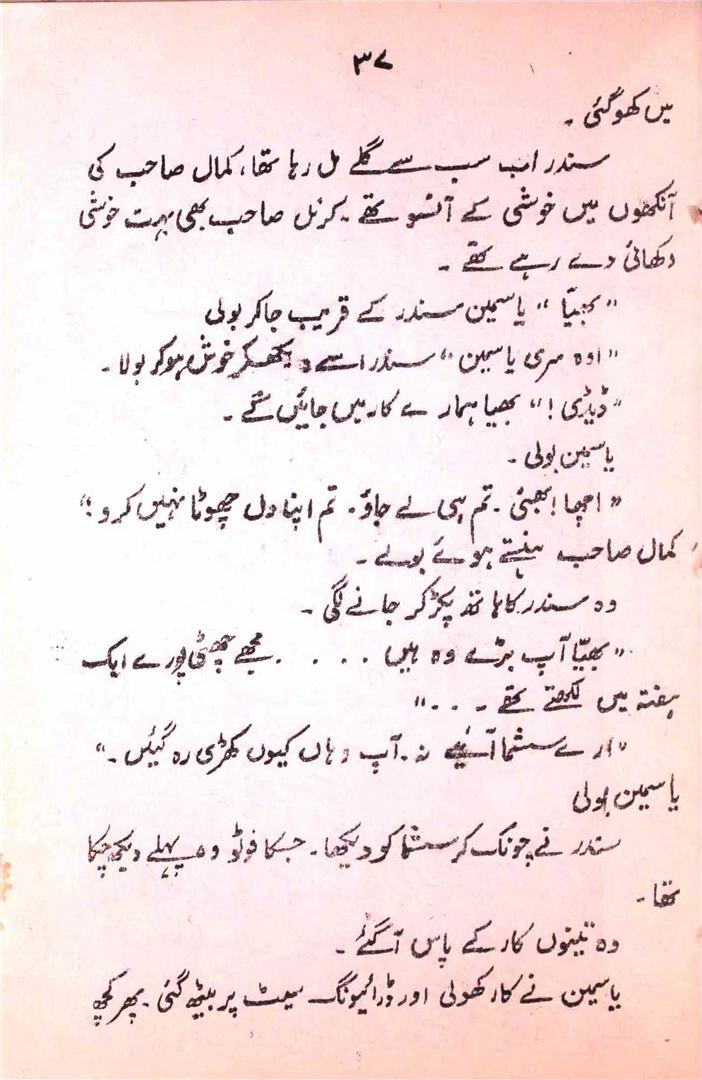 ۳۷
میں کھو گئی ۔
سندر اب سب سے گلے مل رہا تھا، کمال صاحب کی
آنکھوں میں خوشی کے آنسو تھے ۔ کرنل صاحب بھی بہت خوشی
دکھائی دے رہے تھے ۔
"بھیّا" یاسمین سندر کے قریب جا کر بولی
"اوہ مری یاسمین" سندر اسے دیکھکر خوش ہو کر بولا ۔
"ڈیڈی !" بھیا ہمارے کار میں جائیں گے ۔
یاسمین بولی ۔
"اچھا ! بھئی ۔ تم ہی لے جاؤ ۔ تم اپنا دل چھوٹا نہیں کرو !"
کمال صاحب ہنستے ہوئے بولے ۔
وہ سندر کا ہاتھ پکڑ کر جانے لگی ۔
"بھیّا آپ بڑے وہ ہیں . . . . مجھے چھٹی پورے ایک
ہفتہ میں لکھتے تھے ۔ . . "
"ارے سشما آیئے نہ ۔ آپ وہاں کیوں کھڑی رہ گیئں ۔"
یاسمین بولی
سندر نے چونک کر سشما کو دیکھا ۔ جسکا فوٹو وہ پہلے دیکھ چکا
تھا ۔
وہ تینوں کار کے پاس آ گئے ۔
یاسمین نے کار کھولی اور ڈرائیونگ سیٹ پر بیٹھ گئی ۔ پھر کچھ